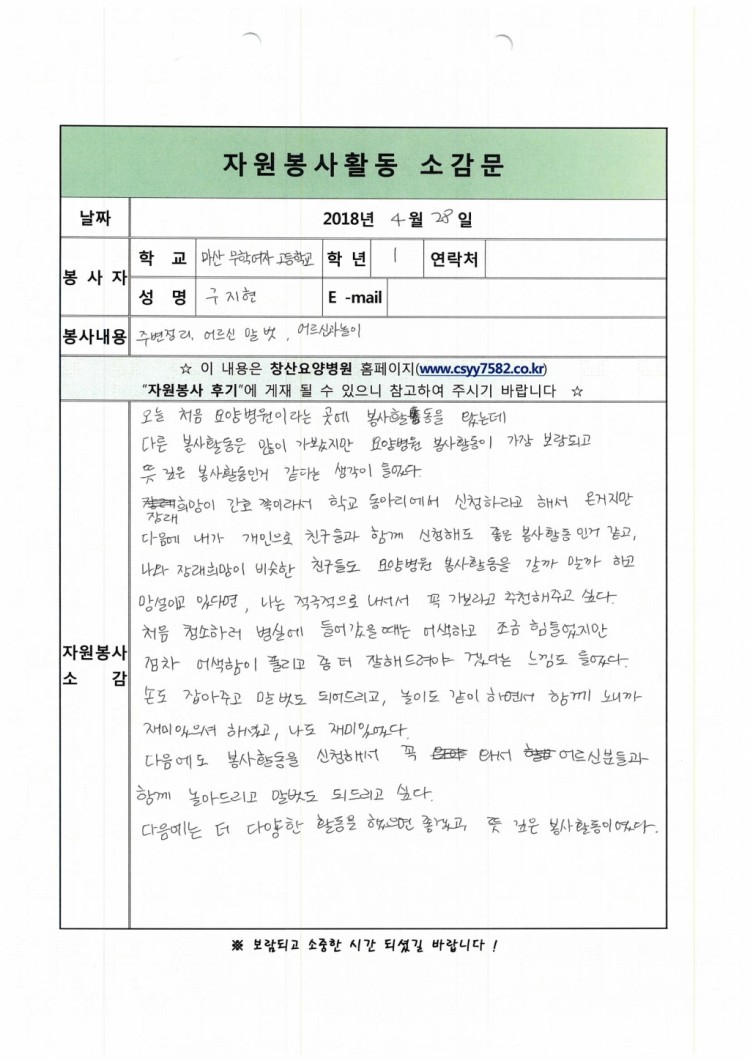 자원봉사활동 소감문
날짜 2018년 4월 28일
봉사자 학교 마산 무학여자 고등학교 학년 1 연락처
성명 구지현 E-mail
봉사내용 주변정리, 어르신 말벗, 어르신과놀이
☆ 이 내용은 창산요양병원 홈페이지(www.csyy7582.co.kr)
"자원봉사 후기"에 게재 될 수 있으니 참고하여 주시기 바랍니다 ☆
자원봉사 소감
오늘 처음 요양병원이라는 곳에 봉사활동을 왔는데
다른 봉사활동은 많이 가봤지만 요양병원 봉사활동이 가장 보람되고
뜻 깊은 봉사활동인거 같다는 생각이 들었다.
장래희망이 간호 쪽이라서 학교 동아리에서 신청하라고 해서 온거지만
다음에 내가 개인으로 친구들과 함께 신청해도 좋은 봉사활동 인거 같고,
나와 장래희망이 비슷한 친구들도 요양병원 봉사활동을 갈까 말까 하고
망설이고 있다면, 나는 적극적으로 나서서 꼭 가보라고 추천해주고 싶다.
처음 청소하러 병실에 들어갔을때는 어색하고 조금 힘들었지만
점차 어색함이 풀리고 좀 더 잘해드려야 겠다는 느낌도 들었다.
손도 잡아주고 말벗도 되어드리고, 놀이도 같이 하면서 함께 노니까
재미있으셔 하셨고, 나도 재미있었다.
다음에도 봉사활동을 신청해서 꼭 와서 어르신분들과
함께 놀아드리고 말벗도 되드리고 싶다.
다음에는 더 다양한 활동을 했으면 좋겠고, 뜻 깊은 봉사활동이었다.
※ 보람되고 소중한 시간 되셨길 바랍니다 !